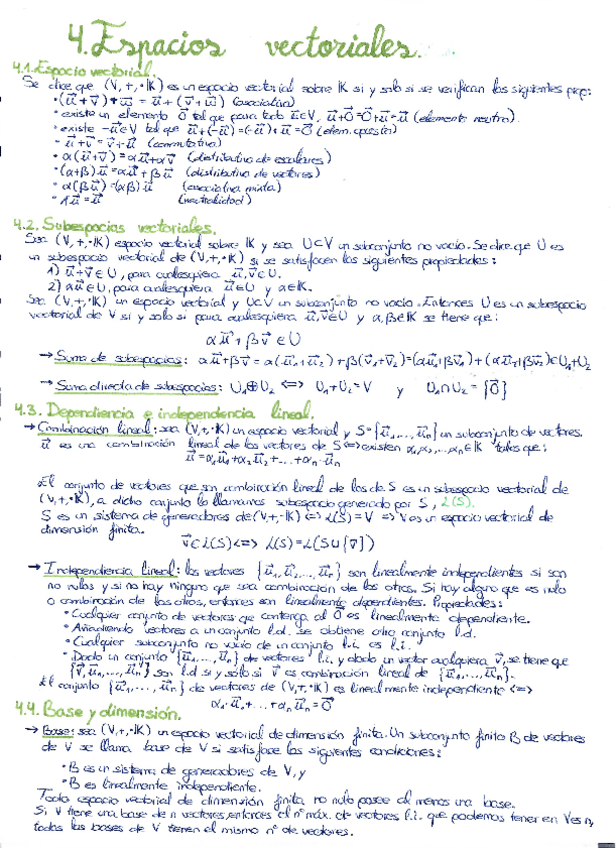 4. Espacios vectoriales.
4.1. Espacio vectorial.
Se dice que (V,+,·K) es un espacio vectorial sobre K si y solo si se verifican las siguientes prop:
· (u⃗+v⃗)+w⃗ = u⃗+(v⃗+w⃗) (asociativa)
· existe un elemento 0⃗ tal que para todo u⃗∈V, u⃗+0⃗=0⃗+u⃗=u⃗ (elemento neutro).
· existe -u⃗∈V tal que u⃗+(-u⃗)=(-u⃗)+u⃗=0⃗ (elem. opuesto)
- u⃗+v⃗=v⃗+u⃗ (conmutativa)
· α(u⃗+v⃗)=αu⃗+αv⃗ (distributiva de escalares)
· (α+β)u⃗=αu⃗+βu⃗ (distributiva de vectores)
· α(βu⃗)=(αβ)u⃗ (asociativa mixta)
· 1u⃗=u⃗ (neutralidad)
4.2. Subespacios vectoriales.
Sea (V,+,·K) espacio vectorial sobre K y sea U⊂V un subconjunto no vacío. Se dice que U es
un subespacio vectorial de (V,+,·K) si se satisfacen las siguientes propiedades:
1) u⃗+v⃗∈U, para cualesquiera u⃗,v⃗∈U.
2) αu⃗∈U, para cualesquiera u⃗∈U y α∈K.
Sea (V,+,·K) un espacio vectorial y U⊂V un subconjunto no vacío. Entonces U es un subespacio
vectorial de V si y solo si para cualesquiera u⃗,v⃗∈U y α,β∈K se tiene que:
αu⃗+βv⃗∈U
→ Suma de subespacios: αu⃗+βv⃗=α(u⃗₁+u⃗₂)+β(v⃗₁+v⃗₂)=(αu⃗₁+βv⃗₁)+(αu⃗₂+βv⃗₂)∈U₁+U₂
→ Suma directa de subespacios: U₁⊕U₂ <=> U₁+U₂=V y U₁∩U₂={0⃗}
4.3. Dependiencia e independencia lineal.
→ Combinación lineal: sea (V,+,·K) un espacio vectorial y S={u⃗₁,...,u⃗n} un subconjunto de vectores.
u⃗ es una combinación lineal de los vectores de S <=> existen α₁,α₂,...,αn∈K tales que:
u⃗=α₁u⃗₁+α₂u⃗₂+...+αn·u⃗n
El conjunto de vectores que son combinación lineal de los de S es un subespacio vectorial de
(V,+,·K), a dicho conjunto lo llamamos subespacio generado por S, L(S).
S es un sistema de generadores de (V,+,·K) <=> L(S)=V => V es un espacio vectorial de
dimensión finita.
v⃗∈L(S) <=> L(S)=L(S∪{v⃗})
→ Independencia lineal: los vectores {u⃗₁,u⃗₂,...,u⃗n} son linealmente independientes si son
no nulos y si no hay ninguno que sea combinación de los otros. Si hay alguno que es nulo
o combinación de los otros, entonces son linealmente dependientes. Propiedades:
· Cualquier conjunto de vectores que contenga al 0⃗ es linealmente dependiente.
· Añadiendo vectores a un conjunto l.d. se obtiene otro conjunto l.d.
· Cualquier subconjunto no vacío de un conjunto l.i. es l.i.
· Dado un conjunto {u⃗₁,...,u⃗n} de vectores l.i. y dado un vector cualquiera v⃗, se tiene que
{v⃗,u⃗₁,...,u⃗n} son l.d si y solo si v⃗ es combinación lineal de {u⃗₁,...,u⃗n}.
El conjunto {u⃗₁,...,u⃗n} de vectores de (V,+,·K) es linealmente independiente <=>
α₁·u⃗₁+...+αn·u⃗n=0⃗
4.4. Base y dimensión.
→ Base: sea (V,+,·K) un espacio vectorial de dimensión finita. Un subconjunto finito B de vectores
de V se llama base de V si satisface las siguientes condiciones:
· B es un sistema de generadores de V, y
· B es linealmente independiente.
Todo espacio vectorial de dimensión finita no nulo posee al menos una base.
Si V tiene una base de n vectores, entonces el nº máx. de vectores l.i. que podemos tener en V es n,
todas las bases de V tienen el mismo nº de vectores.